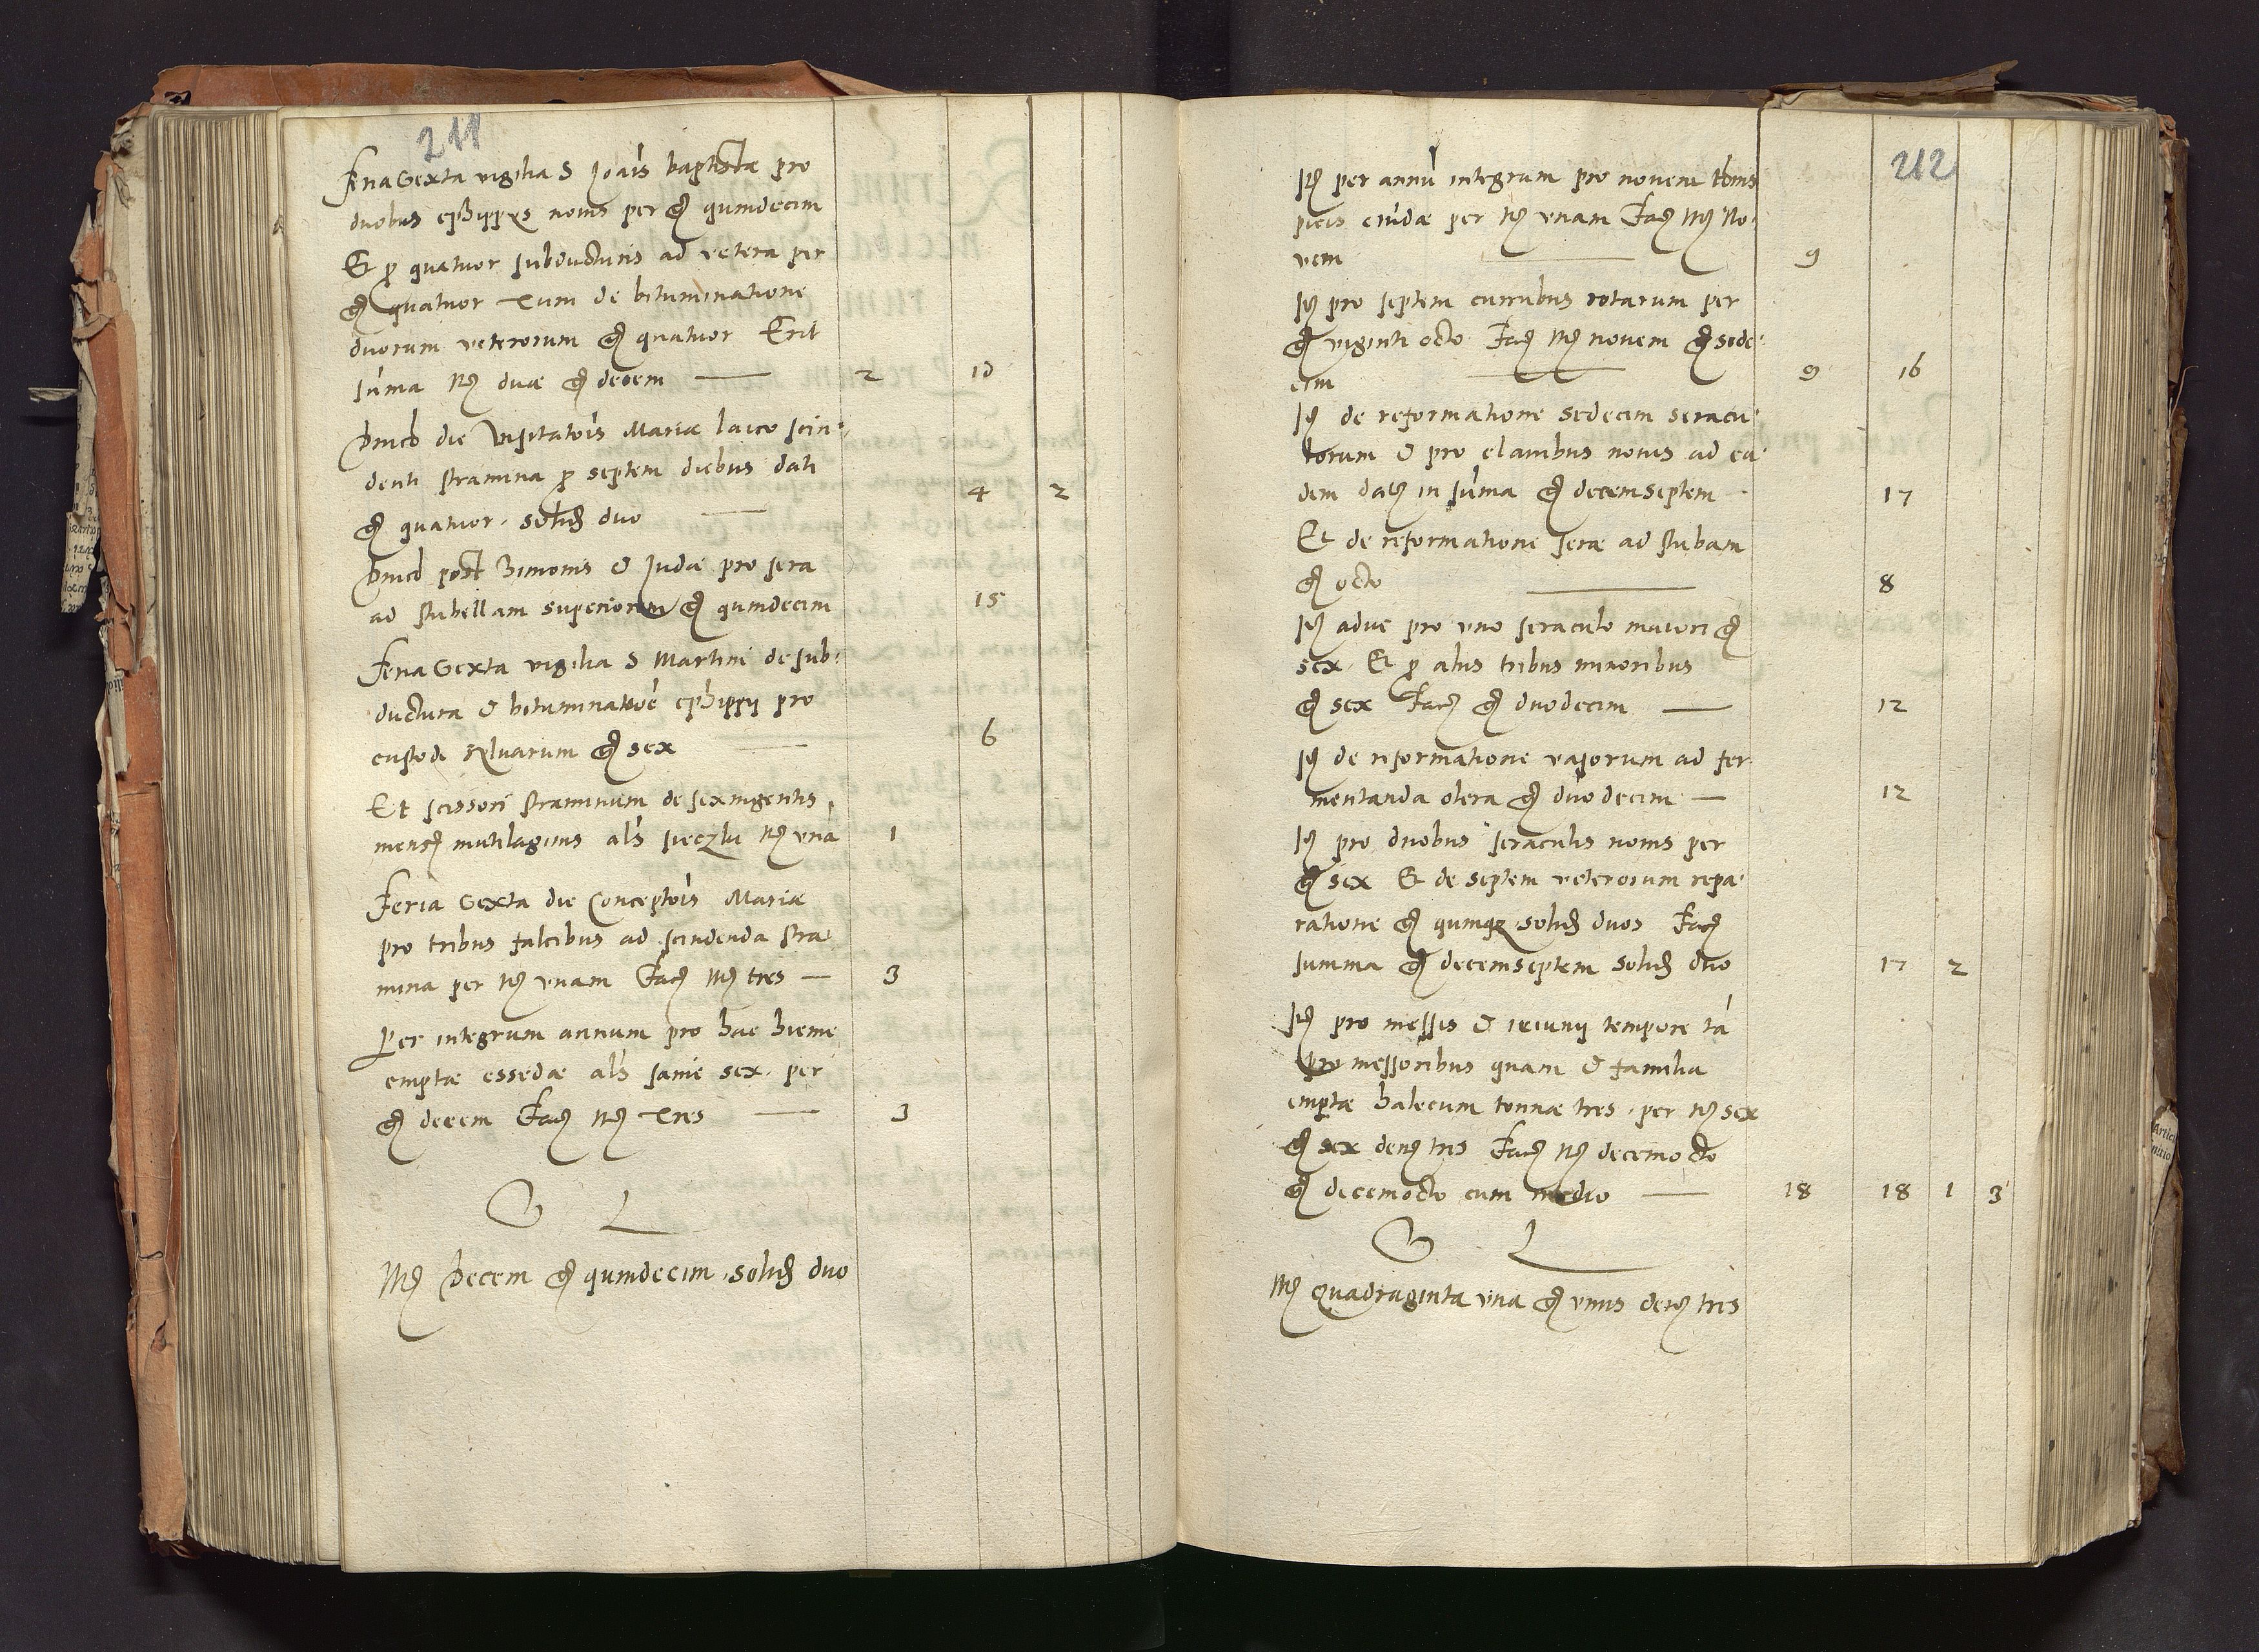 211
Feria Sexta vigilia S Joais baptistæ pro
duobus ephippijs nouis per g quindecim
Et p quatuor subducturis ad vetera per
g quatuor Tum de bituminatione
duorum veterorum g quatuor Erit
suma mr duæ g decem — 2 10
Dnico die Visitatois Mariæ laico scin-
denti stramina p septem diebus dati
g quatuor solid duo — 4 2
Dnico post Simonis & Judæ pro sera
ad stubellam superiorem g quindecim 15
Feria Sexta vigilia S Martini de sub-
ductura & bituminatoe ephippij pro
custode syluarum g sex — 6
Et scissori straminum de sexingentis
mens mutilaginis als sieczki mr vna 1
Feria Sexta die Conceptois Mariæ
pro tribus falcibus ad scindenda stra-
mina per mr vnam Fac mr tres — 3
Per integrum annum pro hac hieme
emptæ essedæ als sanie sex per
g decem Fac mr Tres — 3
S L
Mr Decem g quindecim solid duo
212
It per annu integrum pro nouem tonis
picis cuidæ per mr vnam Fac mr No-
vem — 9
It pro septem curribus rotarum per
g viginti octo Fac mr nouem g sede-
cim — 9 16
It de reformatione sedecim seracu-
lorum & pro clauibus nouis ad ea-
dem dat in suma g decemseptem 17
Et de reformatione seræ ad stubam
g octo — 8
It aduc pro vno seraculo maiori g
sex Et p alijs tribus minoribus
g sex Fac g duodecim — 12
It de reformatione vasorum ad fer
mentanda olera g duodecim — 12
It pro duobus seraculis nouis per
g sex Et de septem veterorum repa-
ratione g quinqz solid duos Fac
summa g decemseptem solid duo 17 2
It pro messis & ieiunij tempore ta
pro messoribus quam & familia
emptæ halecum tonnæ tres per mr sex
g sex den tres Fac mr decemocto
g decemocto cum medio — 18 18 1 3
S L
Mr Quadraginta vna g vnus den tres